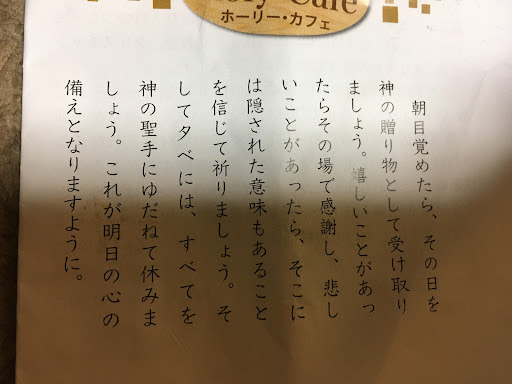 ホーリー・カフェ
朝目覚めたら、その日を
神の贈り物として受け取り
ましょう。嬉しいことがあっ
たらその場で感謝し、悲し
いことがあったら、そこに
は隠された意味もあること
を信じて祈りましょう。そ
して夕べには、すべてを
神の聖手にゆだねて休みま
しょう。これが明日の心の
備えとなりますように。